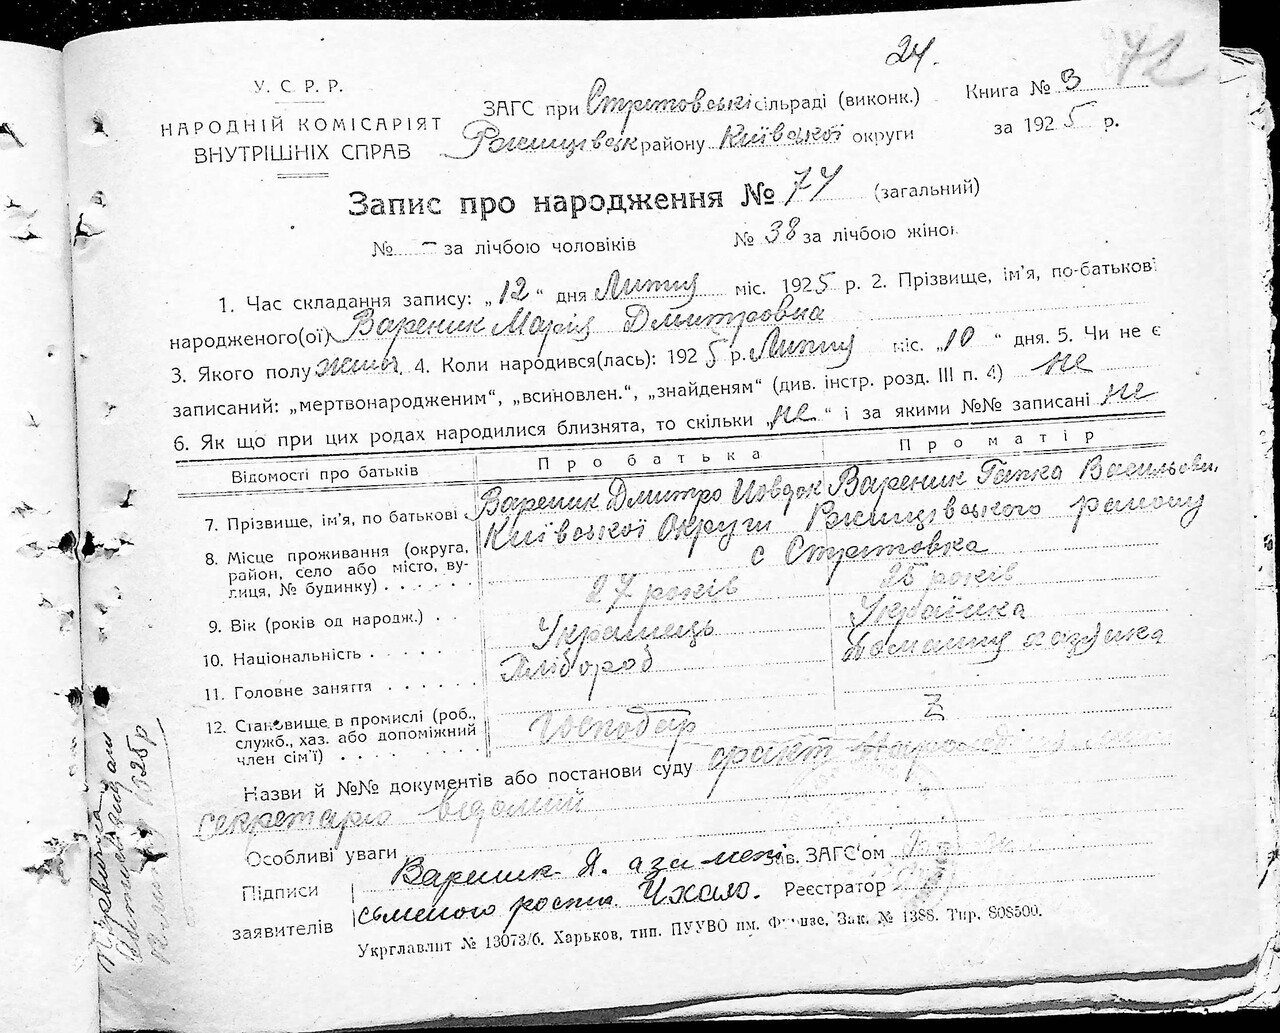 24.
72
У. С. Р. Р.
НАРОДНІЙ КОМІСАРІЯТ
ВНУТРІШНІХ СПРАВ
ЗАГС при Стретовські сільраді (виконк.)
Ржищівськ району Київської округи
Книга № 3
за 1925 р.
Запис про народження № 74 (загальний)
№ – за лічбою чоловіків № 38 за лічбою жінок
1. Час складання запису: „12“ дня Лютия міс. 1925 р. 2. Прізвище, ім'я, по-батькові
народженого(ої) Вареник Марія Дмитровна
3. Якого полу жіноч. 4. Коли народився(лась): 1925 р. Лютия міс. „10“ дня. 5. Чи не є
записаний: „мертвонародженим“, „всиновлен.“, „знайденям“ (див. інстр. розд. III п. 4) не
6. Як що при цих родах народилися близнята, то скільки „не“ і за якими №№ записані не
Відомості про батьків Про батька Про матір
7. Прізвище, ім'я, по батькові Вареник Дмитро Иовдок Вареник Гапка Васильовн.
8. Місце проживання (округа, район, село або місто, вулиця, № будинку) Київської Округи Ржищівського району
с Стретовка
9. Вік (років од народж.) 27 років 25 років
10. Національність Українець Українка
11. Головне заняття Хлібороб Домашня хазяйка
12. Становище в промислі (роб., служб., хаз. або допоміжний член сім'ї) Господар Z
Назви й №№ документів або постанови суду факт
секретарю відомий
Особливі уваги
Підписи Вареник Я. а за мені Зав. ЗАГС'ом
заявителів роспи. Реєстратор
Укрглавлит № 13073/6. Харьков, тип. ПУУВО им. Фрунзе, Зак. № 1388. Тир. 808500.
1925р